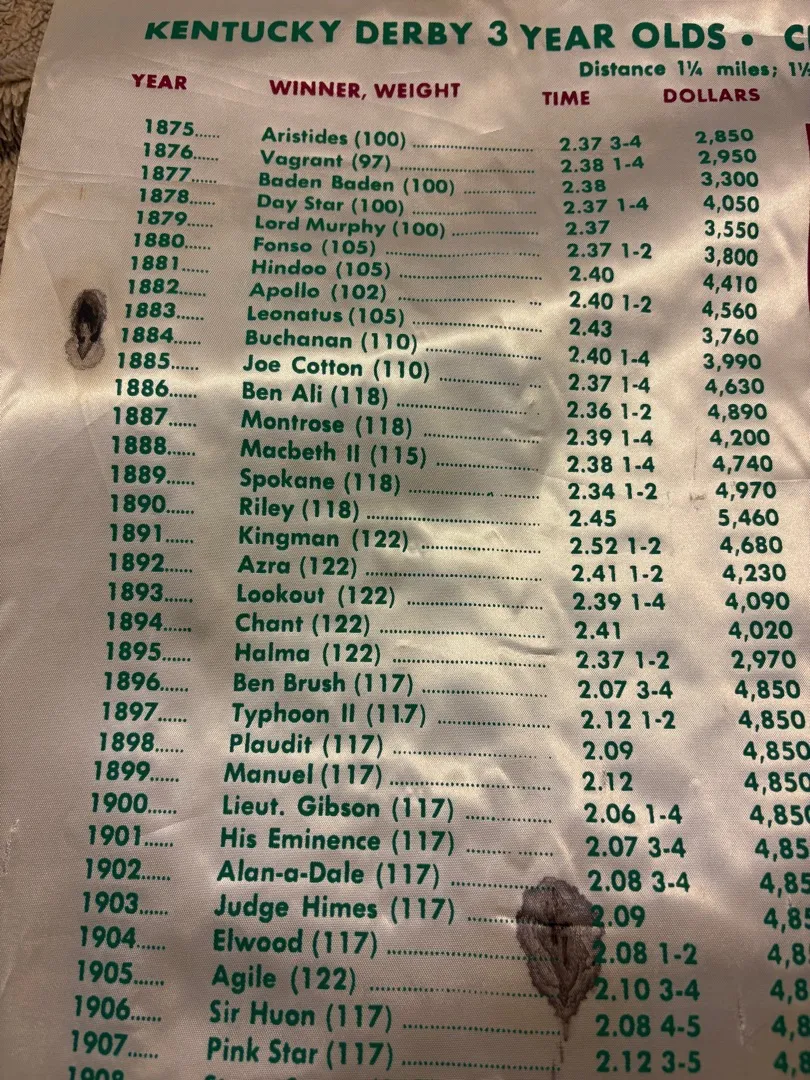 KENTUCKY DERBY 3 YEAR OLDS •
Distance 1¼ miles;
YEAR WINNER, WEIGHT TIME DOLLARS
1875...... Aristides (100) ........ 2.37 3-4 2,850
1876...... Vagrant (97) ........ 2.38 1-4 2,950
1877...... Baden Baden (100) ........ 2.38 3,300
1878...... Day Star (100) ........ 2.37 1-4 4,050
1879...... Lord Murphy (100) ........ 2.37 3,550
1880...... Fonso (105) ........ 2.37 1-2 3,800
1881...... Hindoo (105) ........ 2.40 4,410
1882...... Apollo (102) ........ 2.40 1-2 4,560
1883...... Leonatus (105) ........ 2.43 3,760
1884...... Buchanan (110) ........ 2.40 1-4 3,990
1885...... Joe Cotton (110) ........ 2.37 1-4 4,630
1886...... Ben Ali (118) ........ 2.36 1-2 4,890
1887...... Montrose (118) ........ 2.39 1-4 4,200
1888...... Macbeth II (115) ........ 2.38 1-4 4,740
1889...... Spokane (118) ........ 2.34 1-2 4,970
1890...... Riley (118) ........ 2.45 5,460
1891...... Kingman (122) ........ 2.52 1-2 4,680
1892...... Azra (122) ........ 2.41 1-2 4,230
1893...... Lookout (122) ........ 2.39 1-4 4,090
1894...... Chant (122) ........ 2.41 4,020
1895...... Halma (122) ........ 2.37 1-2 2,970
1896...... Ben Brush (117) ........ 2.07 3-4 4,850
1897...... Typhoon II (117) ........ 2.12 1-2 4,850
1898...... Plaudit (117) ........ 2.09 4,850
1899...... Manuel (117) ........ 2.12 4,850
1900...... Lieut. Gibson (117) ........ 2.06 1-4 4,850
1901...... His Eminence (117) ........ 2.07 3-4 4,85
1902...... Alan-a-Dale (117) ........ 2.08 3-4 4,85
1903...... Judge Himes (117) ........ 2.09 4,8
1904...... Elwood (117) ........ 2.08 1-2 4,8
1905...... Agile (122) ........ 2.10 3-4 4,8
1906...... Sir Huon (117) ........ 2.08 4-5 4,8
1907...... Pink Star (117) ........ 2.12 3-5 4,8
1908